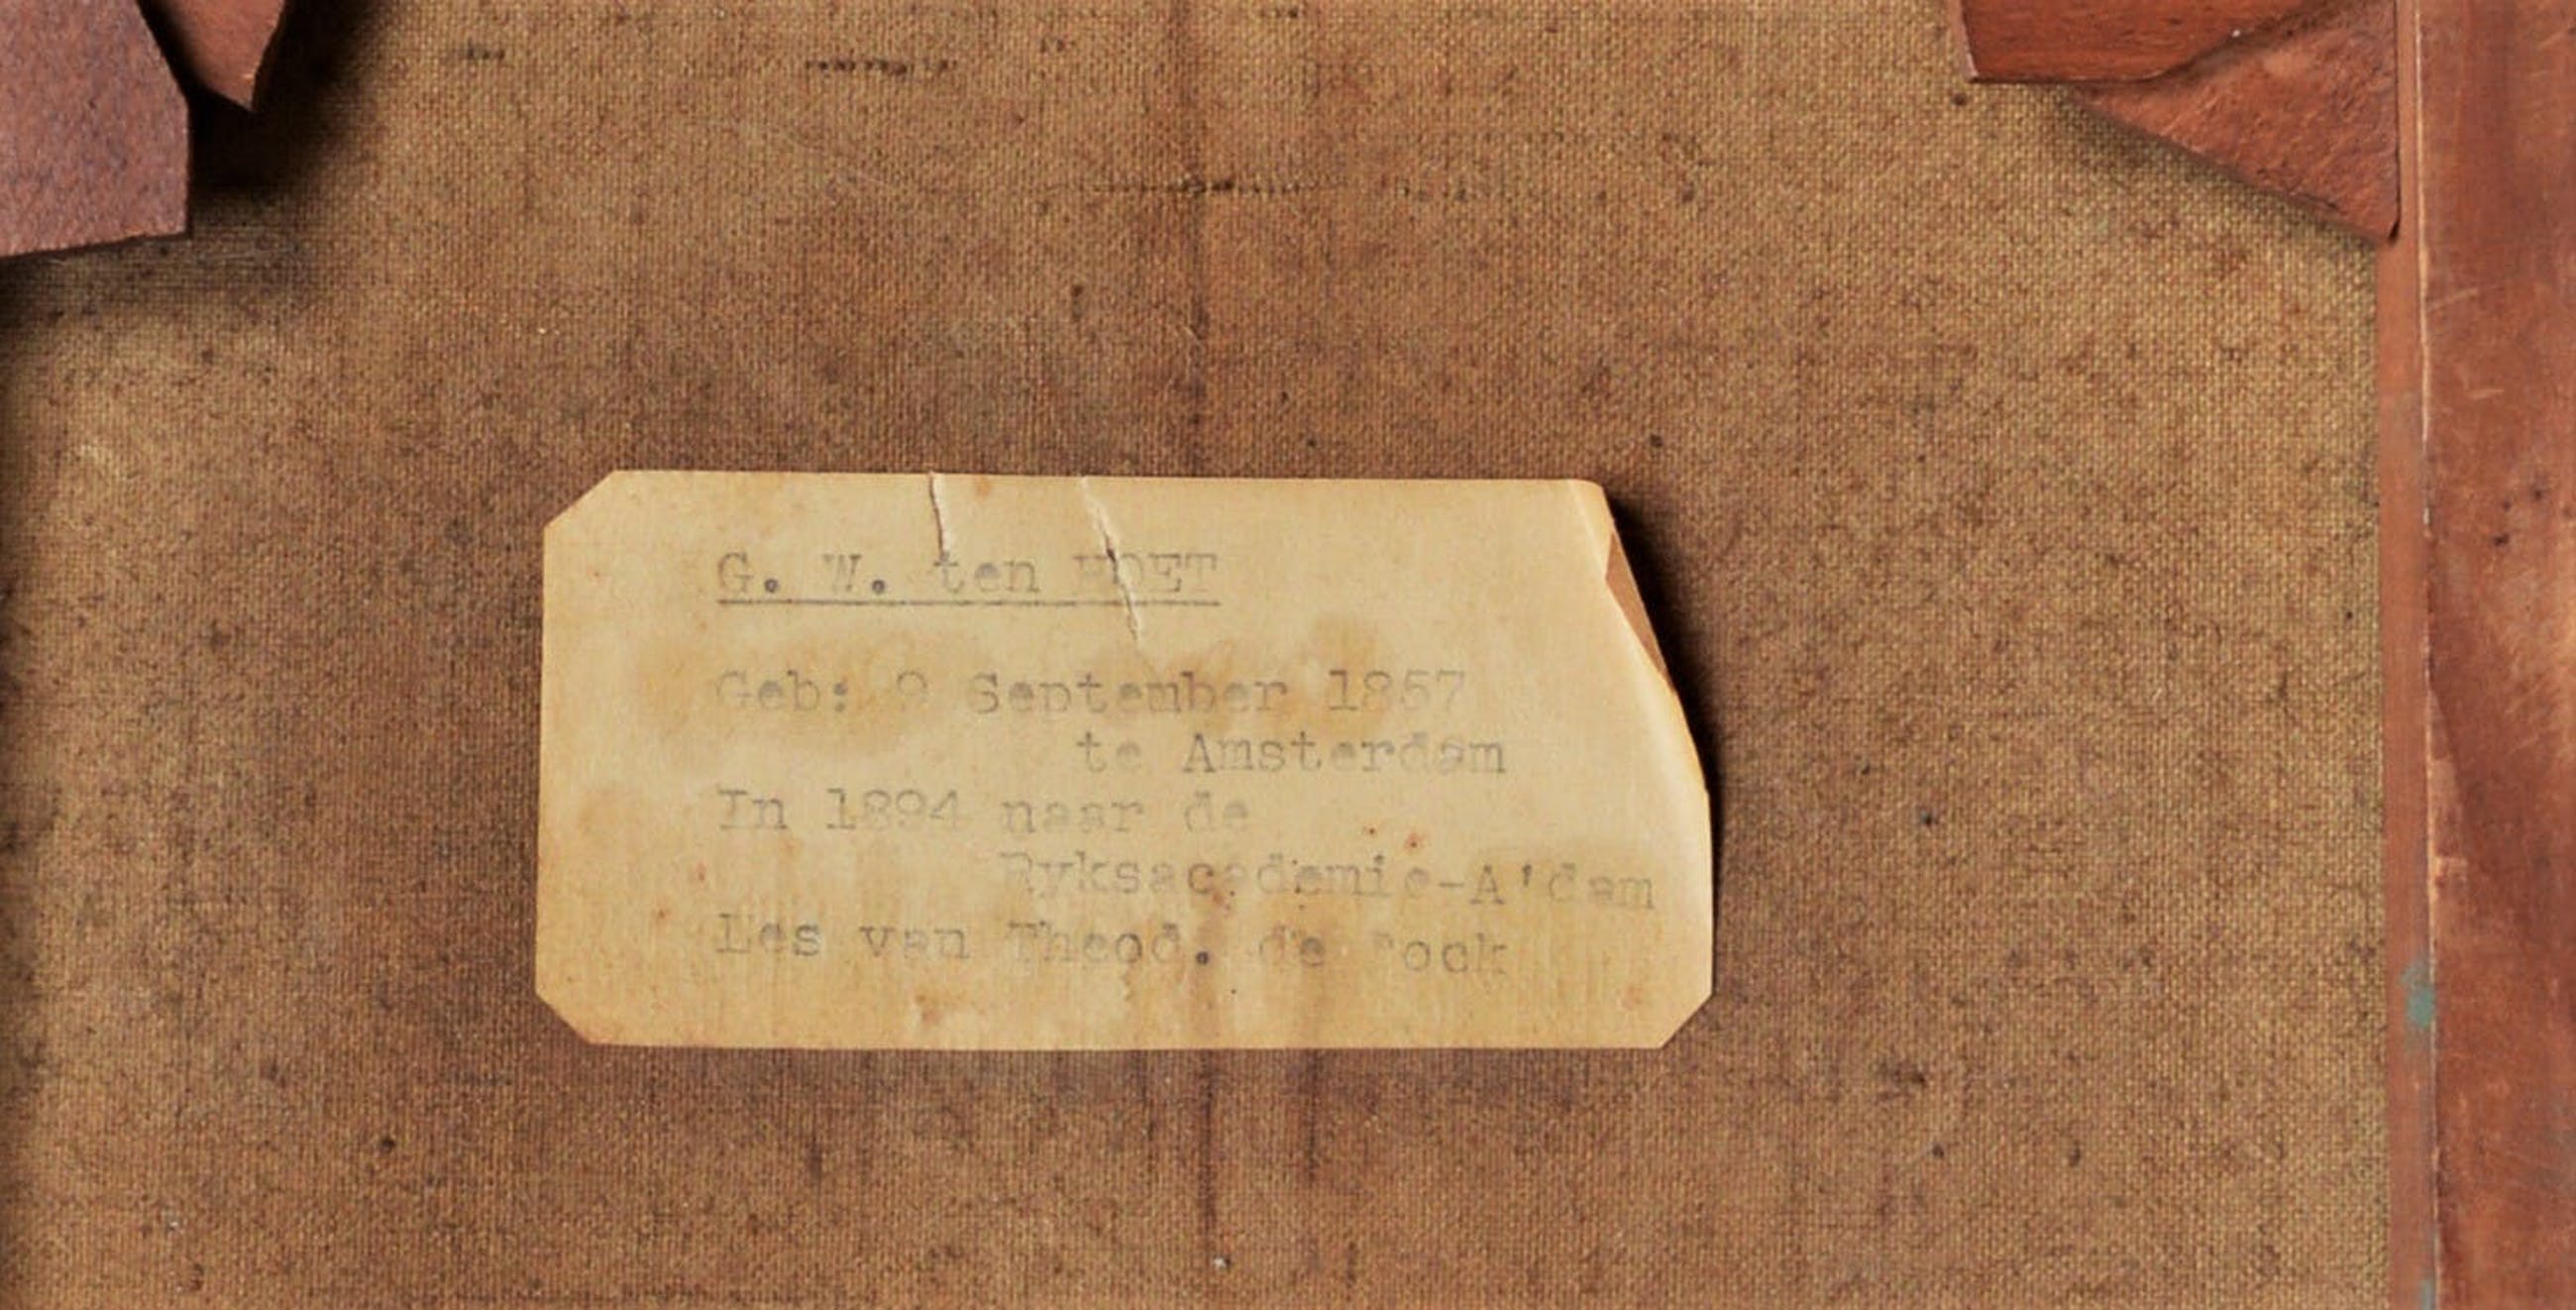 G. W. ten HOET
Geb: 9 September 1867
te Amsterdam
In 1894 naar de
Ryksacademie-A'dam
Les van Theod. de